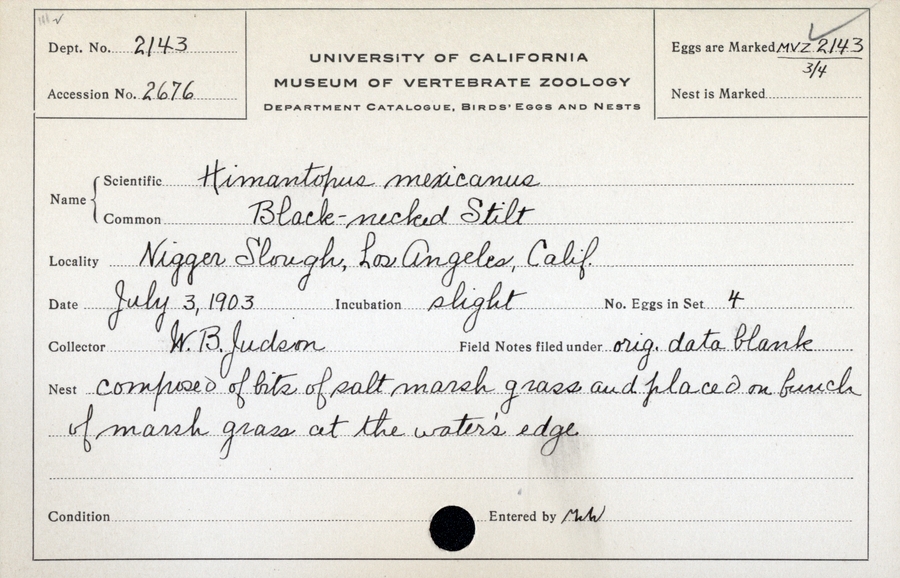 Dept. No. 2143
Accession No. 2676
UNIVERSITY OF CALIFORNIA
MUSEUM OF VERTEBRATE ZOOLOGY
DEPARTMENT CATALOGUE, BIRDS' EGGS AND NESTS
Eggs are Marked MVZ 2143
3/4
Nest is Marked
Name
Scientific Himantopus mexicanus
Common Black-necked Stilt
Locality Nigger Slough, Los Angeles, Calif.
Date July 3, 1903 Incubation slight No. Eggs in Set 4
Collector W. B. Judson Field Notes filed under orig. data blank
Nest composed of bits of salt marsh grass and placed on bunch
of marsh grass at the water's edge
Condition Entered by